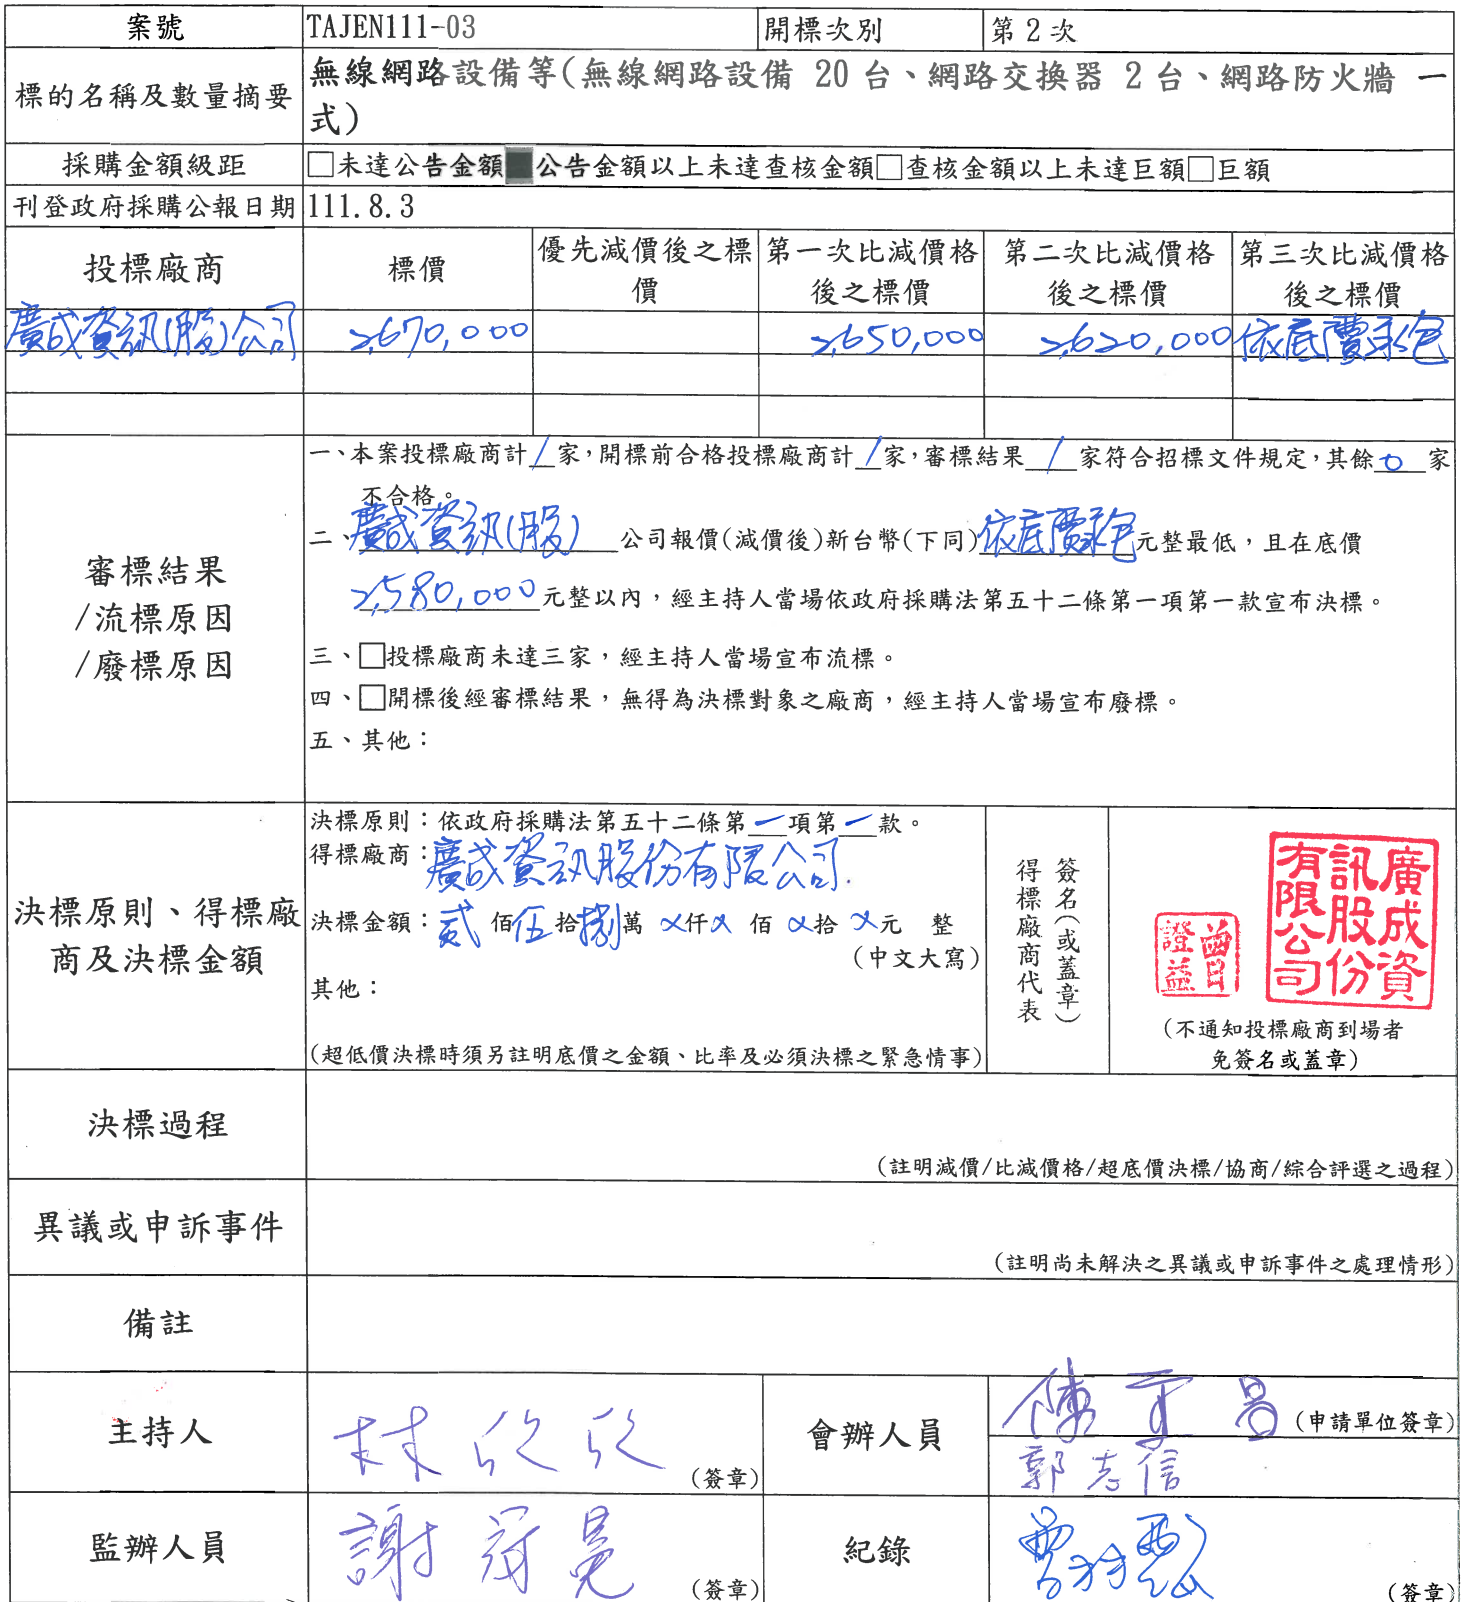 案號 TAJEN111-03 開標次別 第 2 次
標的名稱及數量摘要 無線網路設備等(無線網路設備 20 台、網路交換器 2 台、網路防火牆 一
式)
採購金額級距 □未達公告金額■公告金額以上未達查核金額□查核金額以上未達巨額□巨額
刊登政府採購公報日期 111.8.3
投標廠商 標價 優先減價後之標價 第一次比減價格後之標價 第二次比減價格後之標價 第三次比減價格後之標價
廣成資訊(股)公司 2,670,000 2,650,000 2,620,000 依底價承包
審標結果
/流標原因
/廢標原因
一、本案投標廠商計1家,開標前合格投標廠商計1家,審標結果1家符合招標文件規定,其餘0家
不合格。
二、廣成資訊(股)公司報價(減價後)新台幣(下同)依底價承包元整最低,且在底價
2,580,000元整以內,經主持人當場依政府採購法第五十二條第一項第一款宣布決標。
三、□投標廠商未達三家,經主持人當場宣布流標。
四、□開標後經審標結果,無得為決標對象之廠商,經主持人當場宣布廢標。
五、其他:
決標原則、得標廠
商及決標金額
決標原則:依政府採購法第五十二條第一項第一款。
得標廠商:廣成資訊股份有限公司.
決標金額:貳佰伍拾捌萬 ×仟×佰 ×拾 ×元 整
(中文大寫)
其他:
(超低價決標時須另註明底價之金額、比率及必須決標之緊急情事)
得標廠商代表
簽名(或蓋章)
廣成資訊股份有限公司
曾證益
(不通知投標廠商到場者
免簽名或蓋章)
決標過程
(註明減價/比減價格/超底價決標/協商/綜合評選之過程)
異議或申訴事件
(註明尚未解決之異議或申訴事件之處理情形)
備註
主持人 林欣欣 (簽章) 會辦人員 (申請單位簽章)
郭志信
監辦人員 謝 (簽章) 紀錄 (簽章)